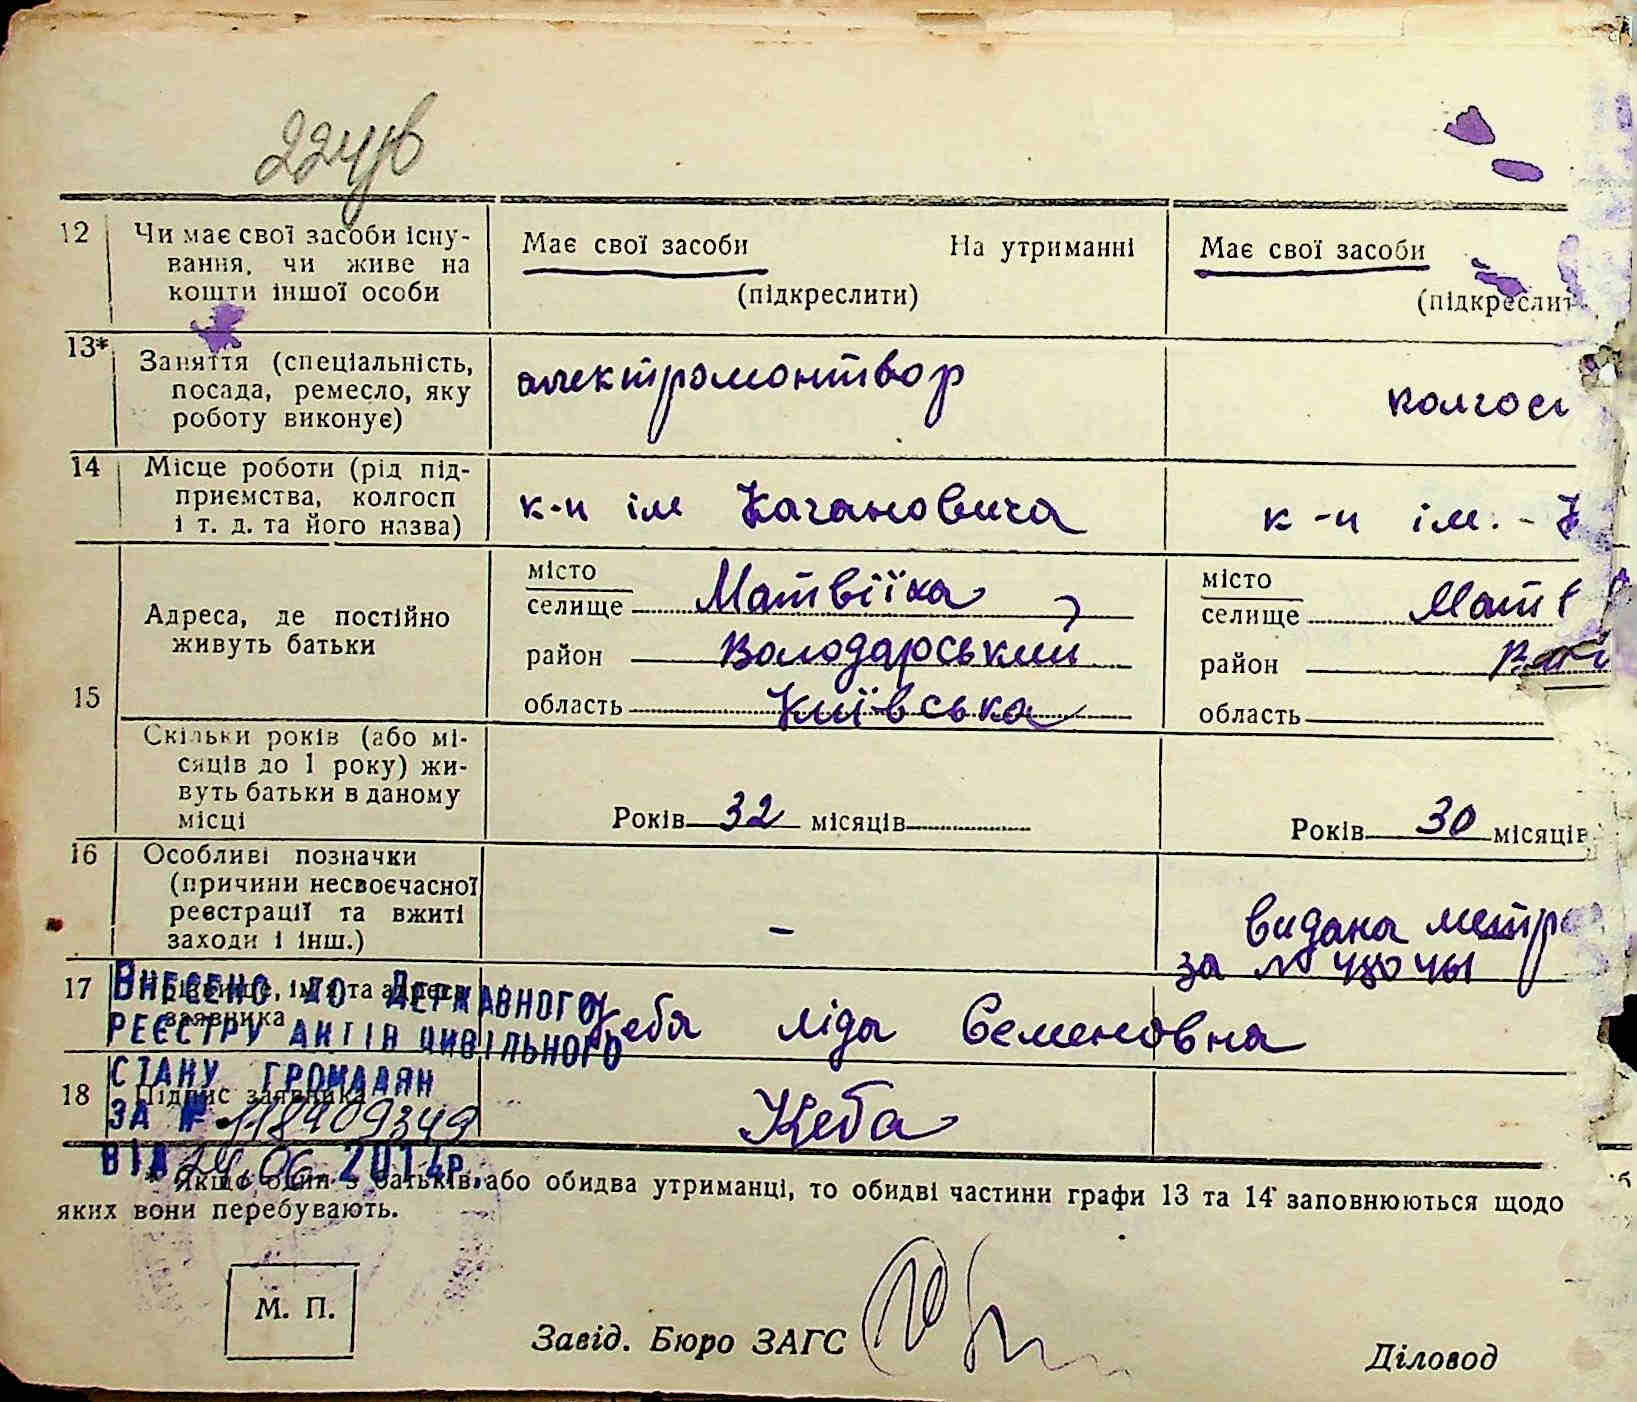 12 Чи має свої засоби існу-
вання, чи живе на
кошти іншої особи
Має свої засоби На утриманні
(підкреслити)
Має свої засоби
(підкреслит
13* Заняття (спеціальність,
посада, ремесло, яку
роботу виконує)
електромонтвор
колгосп
14 Місце роботи (рід під-
приємства, колгосп
і т. д. та його назва)
к-п ім Кагановича
к-п ім. - К
15 Адреса, де постійно
живуть батьки
місто
селище Матвіїха
район Володарський
область Київська
місто
селище Матв
район
область
Скільки років (або мі-
сяців до 1 року) жи-
вуть батьки в даному
місці
Років 32 місяців
Років 30 місяців
16 Особливі позначки
(причини несвоєчасної
реєстрації та вжиті
заходи і інш.)
-
видана метр
за №
17 Прізвище, ім'я та адреса
заявника
Кеба Ліда Семеновна
18 Підпис заявника
Кеба
ВНЕСЕНО ДО ДЕРЖАВНОГО
РЕЄСТРУ АКТІВ ЦИВІЛЬНОГО
СТАНУ ГРОМАДЯН
ЗА № 118909349
ВІД 24.06.2014р.
* Якщо один з батьків, або обидва утриманці, то обидві частини графи 13 та 14 заповнюються щодо
яких вони перебувають.
М. П.
Завід. Бюро ЗАГС
Діловод